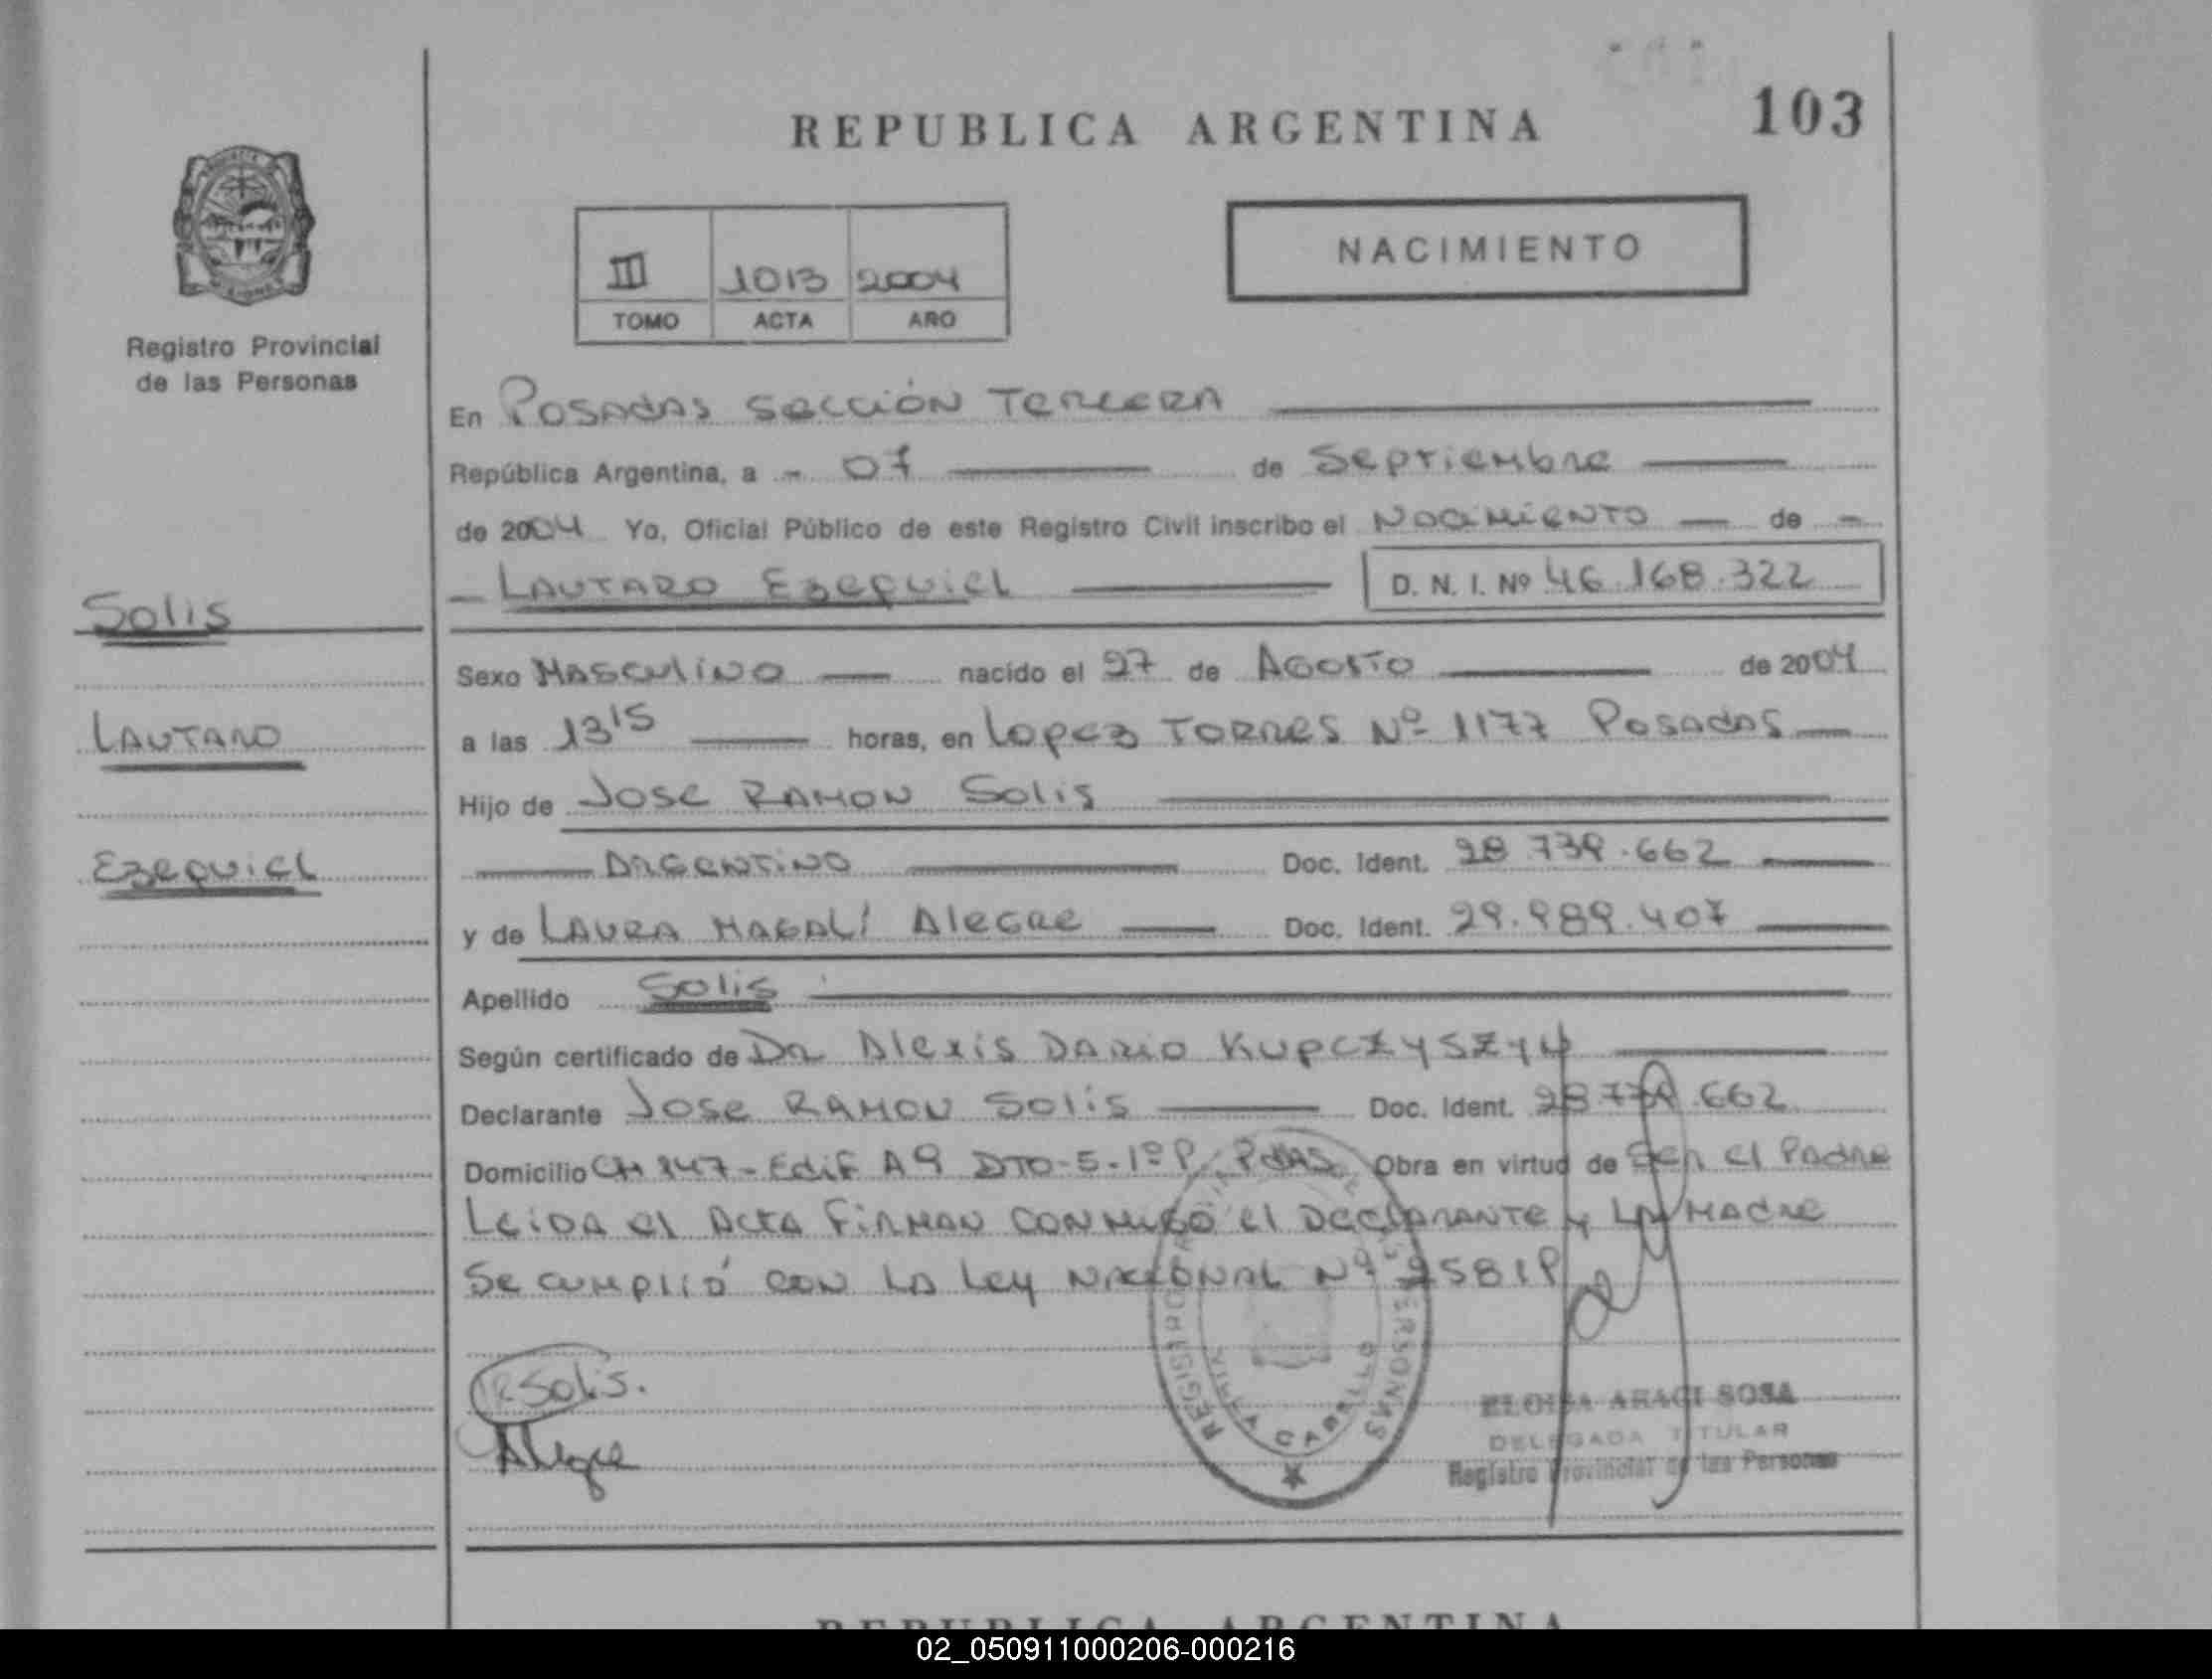 REPUBLICA ARGENTINA
103
III 1013 2004
TOMO ACTA AÑO
NACIMIENTO
Registro Provincial
de las Personas
Solis
Lautaro
Ezequiel
En Posadas Sección Tercera
República Argentina, a - 07 de Septiembre
de 2004 Yo, Oficial Público de este Registro Civil inscribo el Nacimiento de -
- Lautaro Ezequiel D. N. I. Nº 46.168.322
Sexo Masculino nacido el 27 de Agosto de 2004
a las 13 15 horas, en Lopez Torres Nº 1177 Posadas
Hijo de Jose Ramon Solis
Argentino Doc. Ident. 28.739.662
y de Laura Magalí Alegre Doc. Ident. 29.989.407
Apellido Solis
Según certificado de Dr Alexis Dario Kupczyszyn
Declarante Jose Ramon Solis Doc. Ident. 28.739.662
Domicilio CH 147 - Edif A9 DTO-5-1º P. Pdas Obra en virtud de Ser el Padre
Leida el Acta Firman conmigo el Declarante y La Madre
Se cumplió con la Ley Nacional Nº
R Solis.
Alegre
REGISTRO PERSONAS
ELOISA ARACI SOSA
DELEGADA TITULAR
Registro Provincial de las Personas
REPUBLICA ARGENTINA
02_050911000206-000216